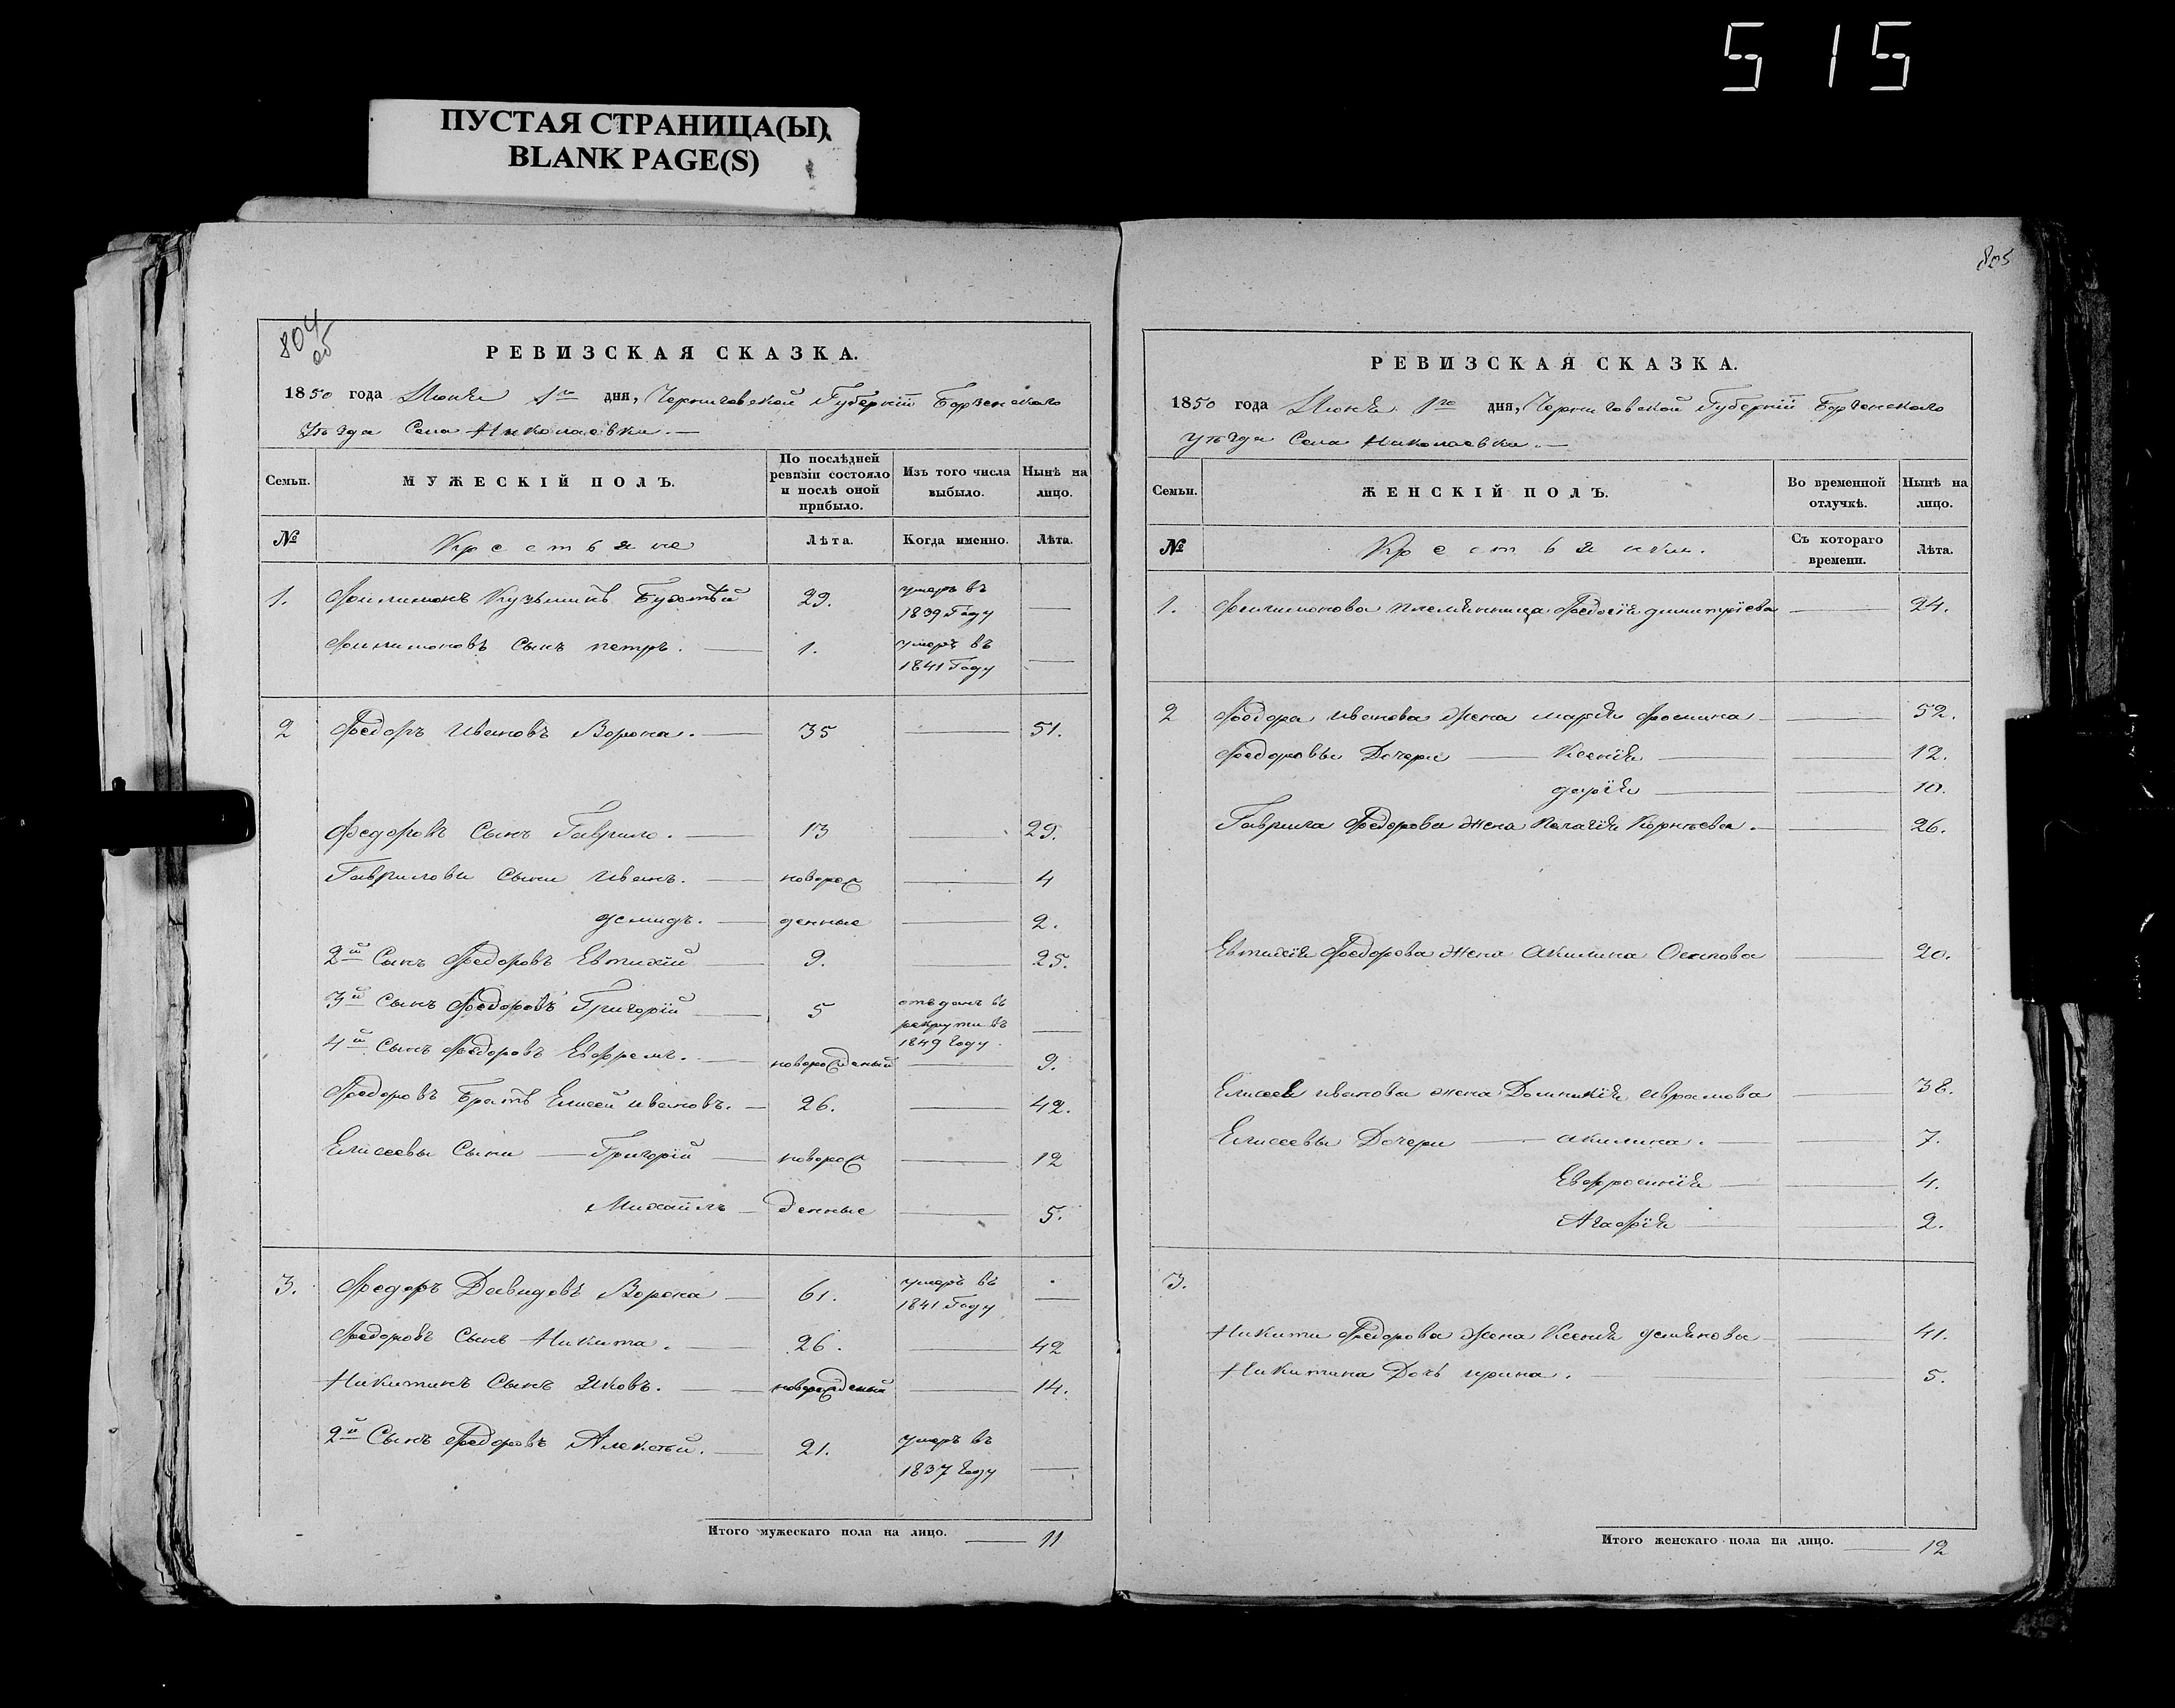 515
ПУСТАЯ СТРАНИЦА(Ы)
BLANK PAGE(S)
804
об
РЕВИЗСКАЯ СКАЗКА.
1850 года Июня 1го дня, Черниговской Губерніи Борзенскаго
Уѣзда Села Николаевки.
Семьи.
МУЖЕСКІЙ ПОЛЪ.
По послѣдней ревизіи состояло и послѣ оной прибыло.
Изъ того числа выбыло.
Нынѣ на лицо.
№
Крестьяне
Лѣта.
Когда именно.
Лѣта.
1. Филимонъ Кузьминъ 29. умеръ въ 1839 Году —
Филимоновъ Сынъ петръ. 1. умеръ въ 1841 Году —
2 Федоръ Ивановъ Ворона. 35 — 51.
Федоровъ Сынъ Гаврило. 13 — 29.
Гавриловы Сыны Иванъ. новорож — 4
демидъ. денные — 2.
2й Сынъ Федоровъ Евтихій 9. — 25.
3й Сынъ Федоровъ Григорій 5 отъданъ въ рекруты въ 1849 Году. —
4й Сынъ Федоровъ Ефремъ. новорожденый — 9.
Федоровъ Братъ Елисей Ивановъ. 26. — 42.
Елисеевы Сыны Григорій новорож — 12
Михаилъ денные — 5.
3. Федоръ Давидовъ Ворона 61. умеръ въ 1841 Году —
Федоровъ Сынъ Никита. 26. — 42
Никитинъ Сынъ Яковъ. новорожденый — 14.
2й Сынъ Федоровъ Алексѣй. 21. умеръ въ 1837 Году —
Итого мужескаго пола на лицо. — 11
805
РЕВИЗСКАЯ СКАЗКА.
1850 года Июня 1го дня, Черниговской Губерніи Борзенскаго
Уѣзда Села Николаевки.
Семьи.
ЖЕНСКІЙ ПОЛЪ.
Во временной отлучкѣ.
Нынѣ на лицо.
№
Крестьянки.
Съ котораго времени.
Лѣта.
1. Филимонова племянница Федосія дмитріева — 24.
2 Федора Иванова Жена марія Фомина — 52.
Федоровы Дочери — Ксенія — 12.
дарія — 10.
Гаврила Федорова Жена Пелагія Корнѣева. — 26.
Евтихія Федорова Жена Акилина Осипова — 20.
Елисея Иванова жена Домникія Аврамова — 38.
Елисеевы Дочери — Акилина. — 7.
Евфросинія — 4.
Агафія — 2.
3.
Никиты Федорова Жена Ксенія демянова — 41.
Никитина Дочь ирина. — 5.
Итого женскаго пола на лицо. — 12